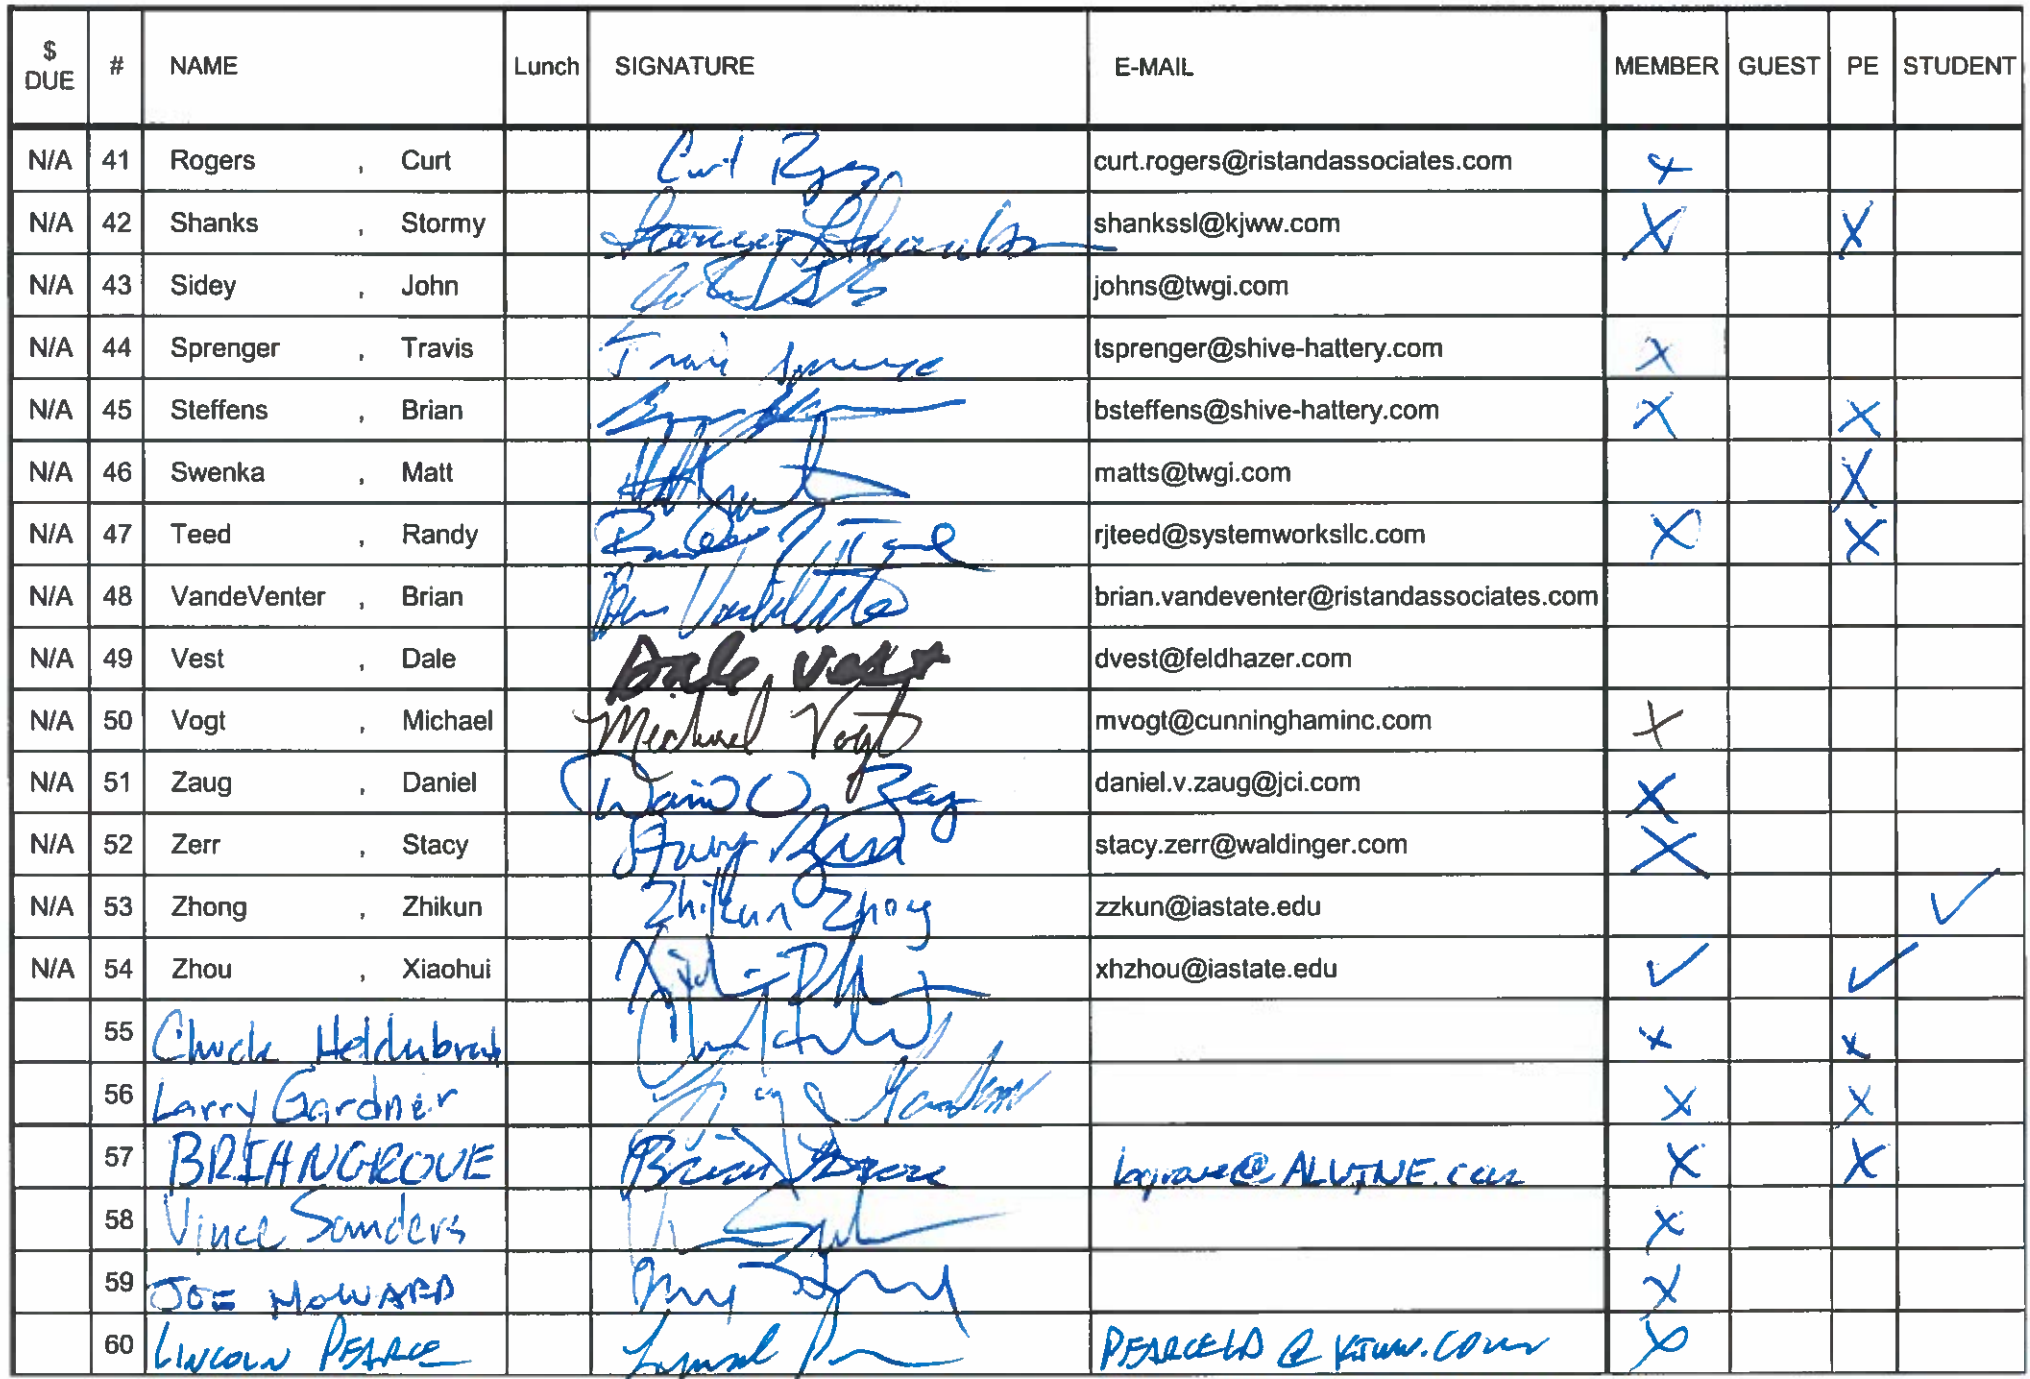 $ DUE # NAME Lunch SIGNATURE E-MAIL MEMBER GUEST PE STUDENT
N/A 41 Rogers , Curt Curt curt.rogers@ristandassociates.com X
N/A 42 Shanks , Stormy Stormy Shanks shankssl@kjww.com X X
N/A 43 Sidey , John johns@twgi.com
N/A 44 Sprenger , Travis Travis tsprenger@shive-hattery.com X
N/A 45 Steffens , Brian bsteffens@shive-hattery.com X X
N/A 46 Swenka , Matt matts@twgi.com X
N/A 47 Teed , Randy rjteed@systemworksllc.com X X
N/A 48 VandeVenter , Brian brian.vandeventer@ristandassociates.com
N/A 49 Vest , Dale Dale Vest dvest@feldhazer.com
N/A 50 Vogt , Michael Michael Vogt mvogt@cunninghaminc.com X
N/A 51 Zaug , Daniel daniel.v.zaug@jci.com X
N/A 52 Zerr , Stacy stacy.zerr@waldinger.com X
N/A 53 Zhong , Zhikun Zhikun Zhong zzkun@iastate.edu ✓
N/A 54 Zhou , Xiaohui xhzhou@iastate.edu ✓ ✓
55 Chuck x x
56 Larry Gardner X X
57 BRIAN GROVE Brian Grove bgrove@ALVINE.com X X
58 Vince Sanders X
59 JOE HOWARD X
60 LINCOLN PEARCE PEARCELD @ KJWW.COM X